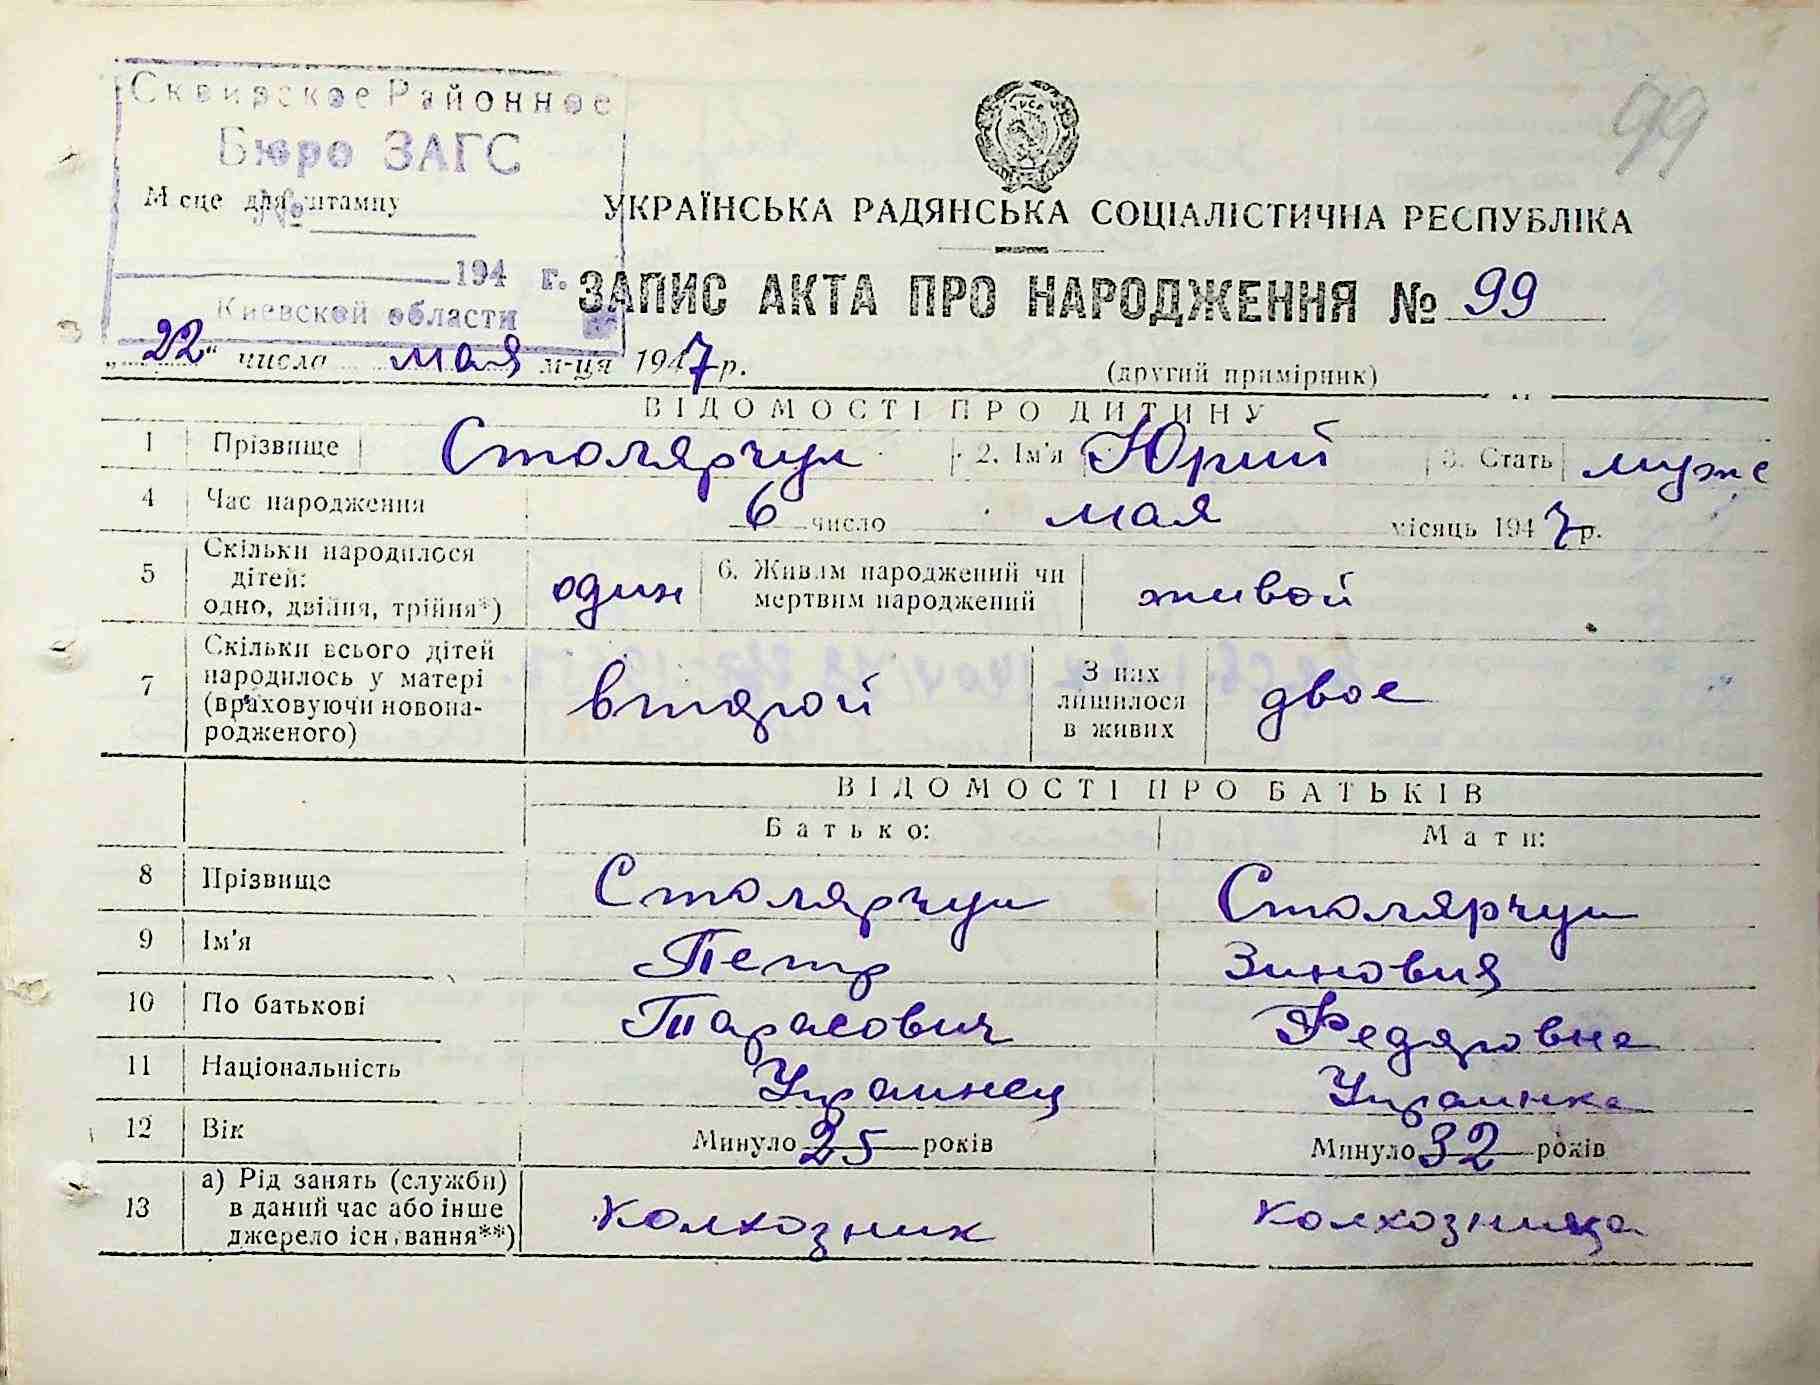 Сквирское Районное
Бюро ЗАГС
99
Місце для штампу
№
УКРАЇНСЬКА РАДЯНСЬКА СОЦІАЛІСТИЧНА РЕСПУБЛІКА
194 г.
Киевской области
ЗАПИС АКТА ПРО НАРОДЖЕННЯ № 99
„22“ числа мая м-ця 1947 р.
(другий примірник)
ВІДОМОСТІ ПРО ДИТИНУ
1 Прізвище Столярчук 2. Ім'я Юрий 3. Стать мужс
4 Час народження 6 число мая місяць 1947 р.
5 Скільки народилося
дітей:
одно, двійня, трійня*) один 6. Живим народжений чи
мертвим народжений живой
7 Скільки всього дітей
народилось у матері
(враховуючи новона-
родженого) второй З них
лишилося
в живих двое
ВІДОМОСТІ ПРО БАТЬКІВ
Батько: Мати:
8 Прізвище Столярчук Столярчук
9 Ім'я Петр Зиновия
10 По батькові Тарасович Федяровна
11 Національність Украинец Украинка
12 Вік Минуло 25 років Минуло 32 років
13 а) Рід занять (служби)
в даний час або інше
джерело існування**) колхозник колхозница